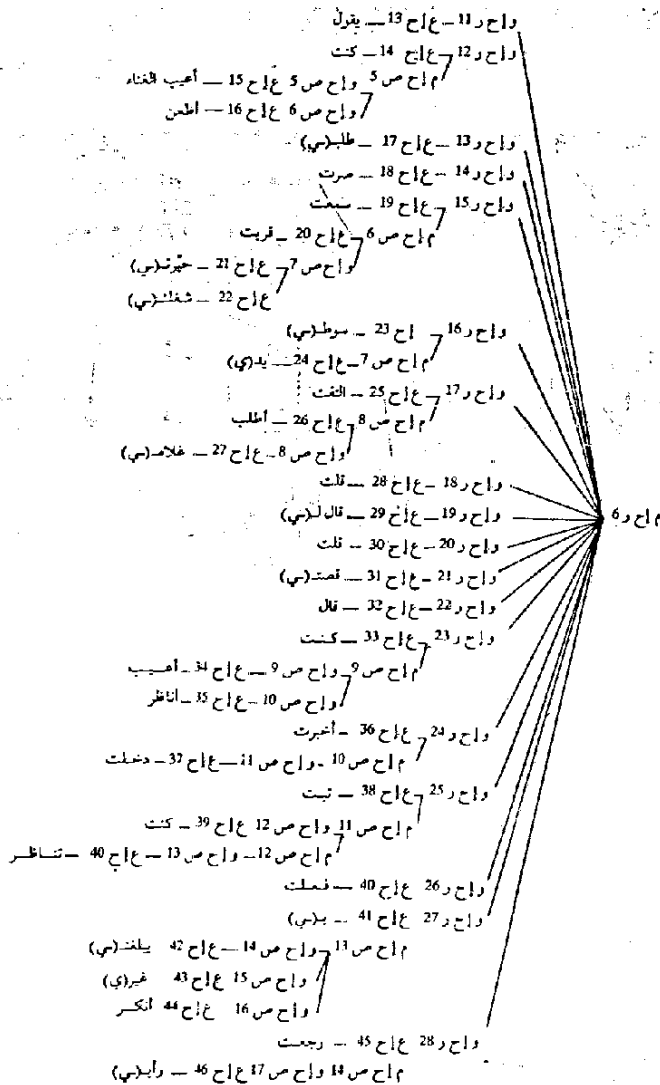 و إ ح ر 11 – ع إ ح 13 – يقول
و إ ح ر 12 – ع إ ح 14 – كنت
م إ ح ص 5 و إ ح ص 5 ع إ ح 15 – أعيب الغناء
و إ ح ص 6 ع إ ح 16 – أطعن
و إ ح ر 13 – ع إ ح 17 – طلبـ(ـي)
و إ ح ر 14 – ع إ ح 18 – صرت
و إ ح ر 15 – ع إ ح 19 – سمعت
م إ ح ص 6 – ع إ ح 20 – قربت
و إ ح ص 7 – ع إ ح 21 – حيّرتـ(ـي)
ع إ ح 22 – شغلتـ(ـي)
و إ ح ر 16 – إ ح 23 – سوطـ(ـي)
م إ ح ص 7 – ع إ ح 24 – يد(ي)
و إ ح ر 17 – ع إ ح 25 – التفت
م إ ح ص 8 – ع إ ح 26 – أطلب
و إ ح ص 8 – ع إ ح 27 – غلامـ(ـي)
و إ ح ر 18 – ع إ ح 28 – قلت
م إ ح ر 6
و إ ح ر 19 – ع إ ح 29 – قال لـ(ـي)
و إ ح ر 20 – ع إ ح 30 – قلت
و إ ح ر 21 – ع إ ح 31 – قصتـ(ـي)
و إ ح ر 22 – ع إ ح 32 – قال
و إ ح ر 23 – ع إ ح 33 – كنت
م إ ح ص 9 – و إ ح ص 9 – ع إ ح 34 – أعيب
و إ ح ص 10 – ع إ ح 35 – أناظر
و إ ح ر 24 – ع إ ح 36 – أخبرت
م إ ح ص 10 – و إ ح ص 11 – ع إ ح 37 – دخلت
و إ ح ر 25 – ع إ ح 38 – تبت
م إ ح ص 11 – و إ ح ص 12 ع إ ح 39 – كنت
م إ ح ص 12 – و إ ح ص 13 – ع إ ح 40 – تناظر
و إ ح ر 26 ع إ ح 40 – فعلت
و إ ح ر 27 ع إ ح 41 – بـ(ـي)
م إ ح ص 13 – و إ ح ص 14 – ع إ ح 42 يبلغنـ(ـي)
و إ ح ص 15 ع إ ح 43 غير(ي)
و إ ح ص 16 ع إ ح 44 أنكر
و إ ح ر 28 ع إ ح 45 – رجعت
م إ ح ص 14 و إ ح ص 17 ع إ ح 46 – رأيـ(ـي)